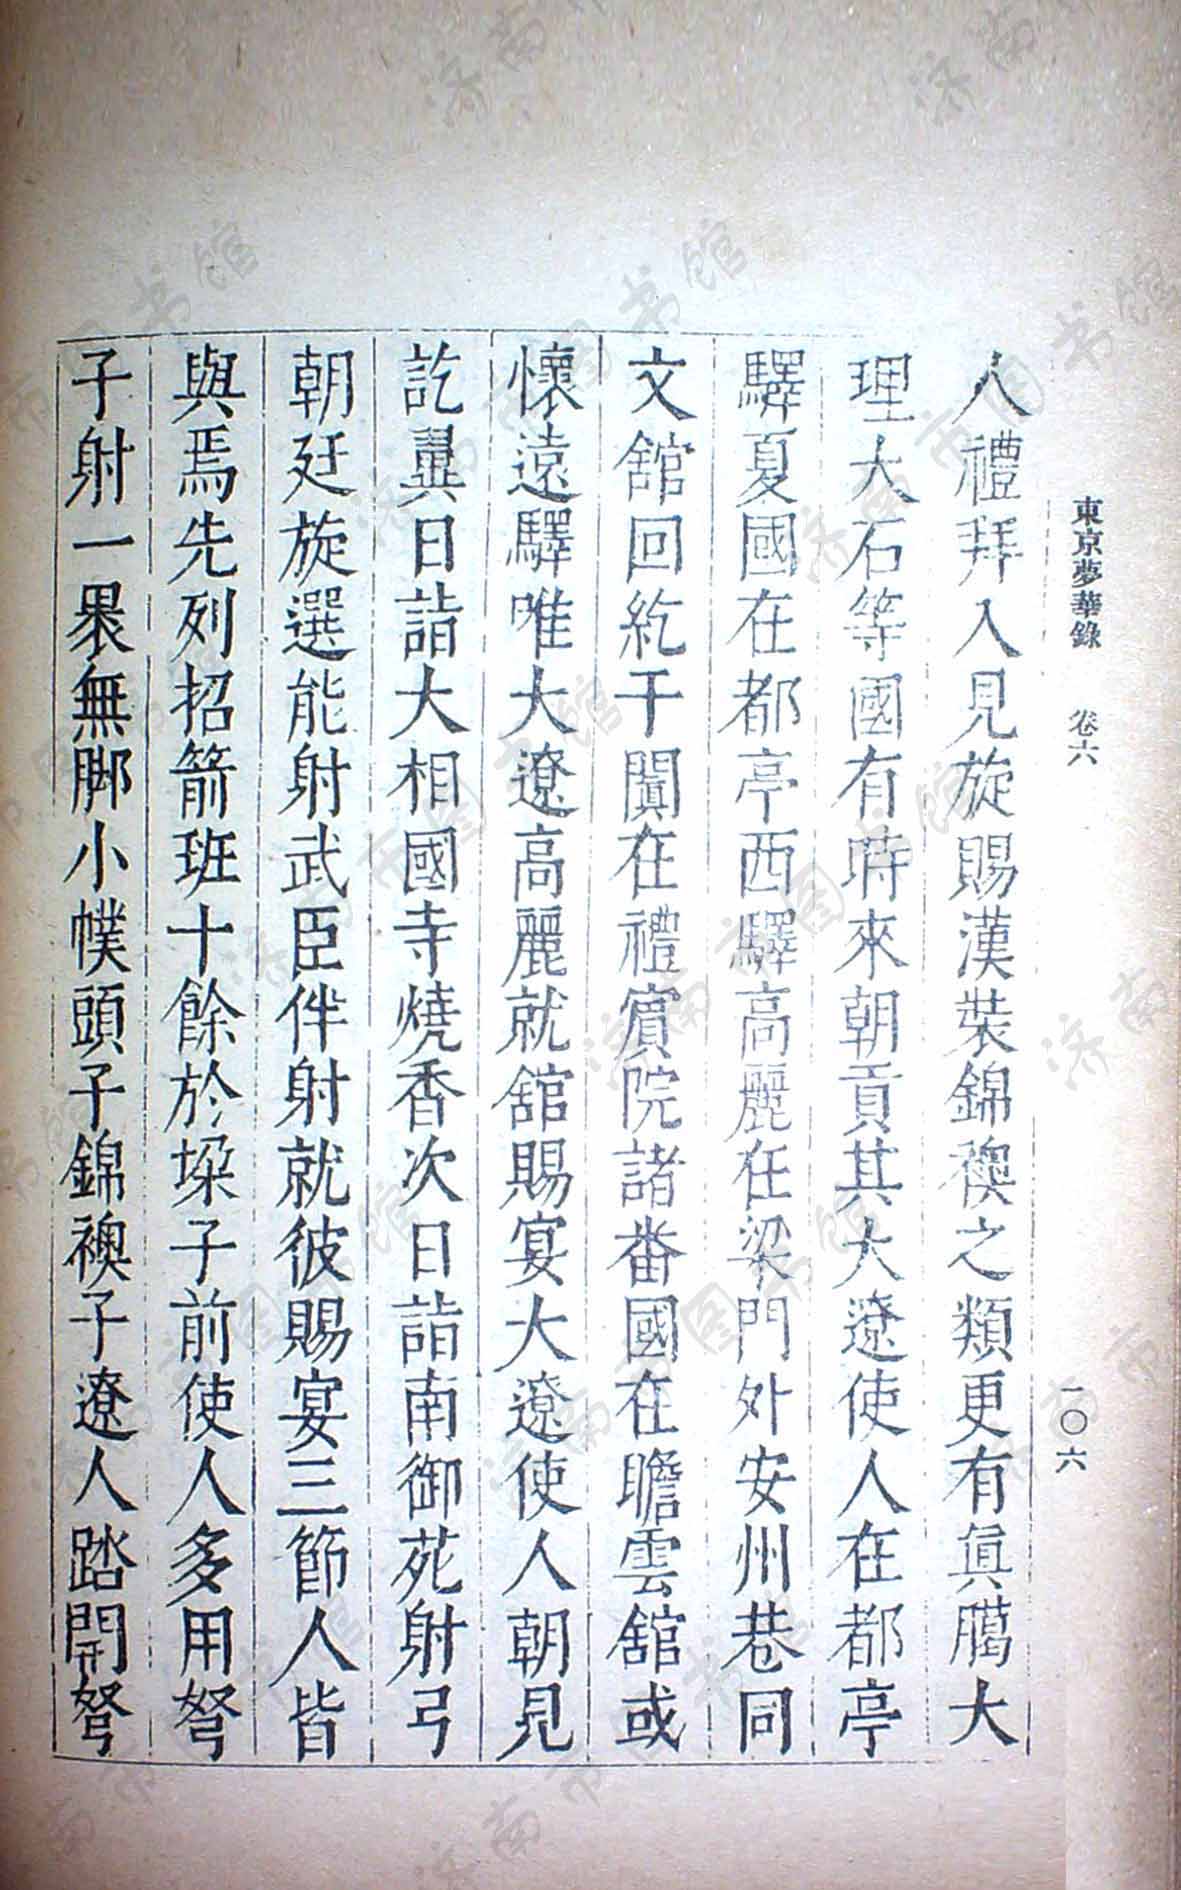 東京夢華錄 卷六 一〇六
人禮拜入見旋賜漢裝錦襖之類更有真臈大
理大石等國有時來朝貢其大遼使人在都亭
驛夏國在都亭西驛高麗在梁門外安州巷同
文舘回紇于闐在禮賓院諸番國在瞻雲舘或
懷遠驛唯大遼高麗就舘賜宴大遼使人朝見
訖翼日詣大相國寺燒香次日詣南御苑射弓
朝廷旋選能射武臣伴射就彼賜宴三節人皆
與焉先列招箭班十餘於垛子前使人多用弩
子射一裹無脚小幞頭子錦襖子遼人踏開弩
济南市图书馆